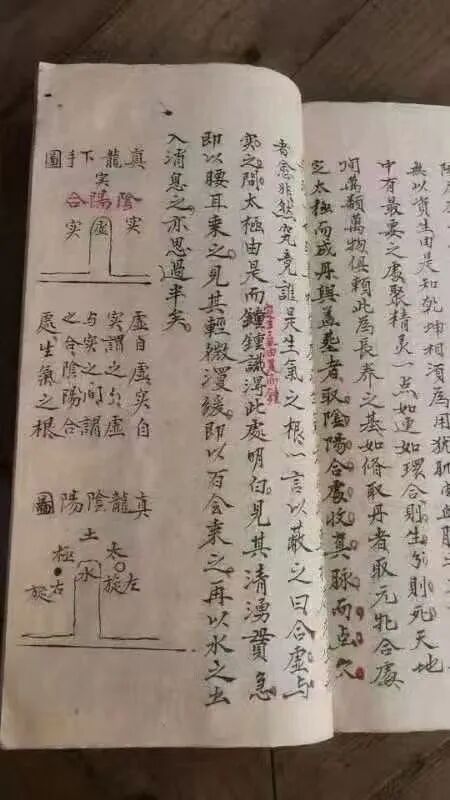 無以資生由是知乾坤相須為用犹肌肉血
中有最要之處聚精灵一点如連如環合則生分則死天地
间萬類萬物俱賴此為長养之基如脩取丹者取元牝合處
定太極而成丹與蓋塟者取陰陽合處收其脉而点穴
者忿非然究竟誰是生氣之根一言以蔽之曰合虛与
实之間太極由是而鍾鍾識得此處明白見其清湧買急
即以腰耳乘之見其輕微漫缓即以百会乘之再以水之出
入消息之亦思過半矣
真龍下手圖
实
陰陽合
实虛实
虛自虛实自
实謂之分虛
与实之间謂
之合陰陽合
處生氣之根
真龍陰陽圖
土
太極
水
左旋
右旋